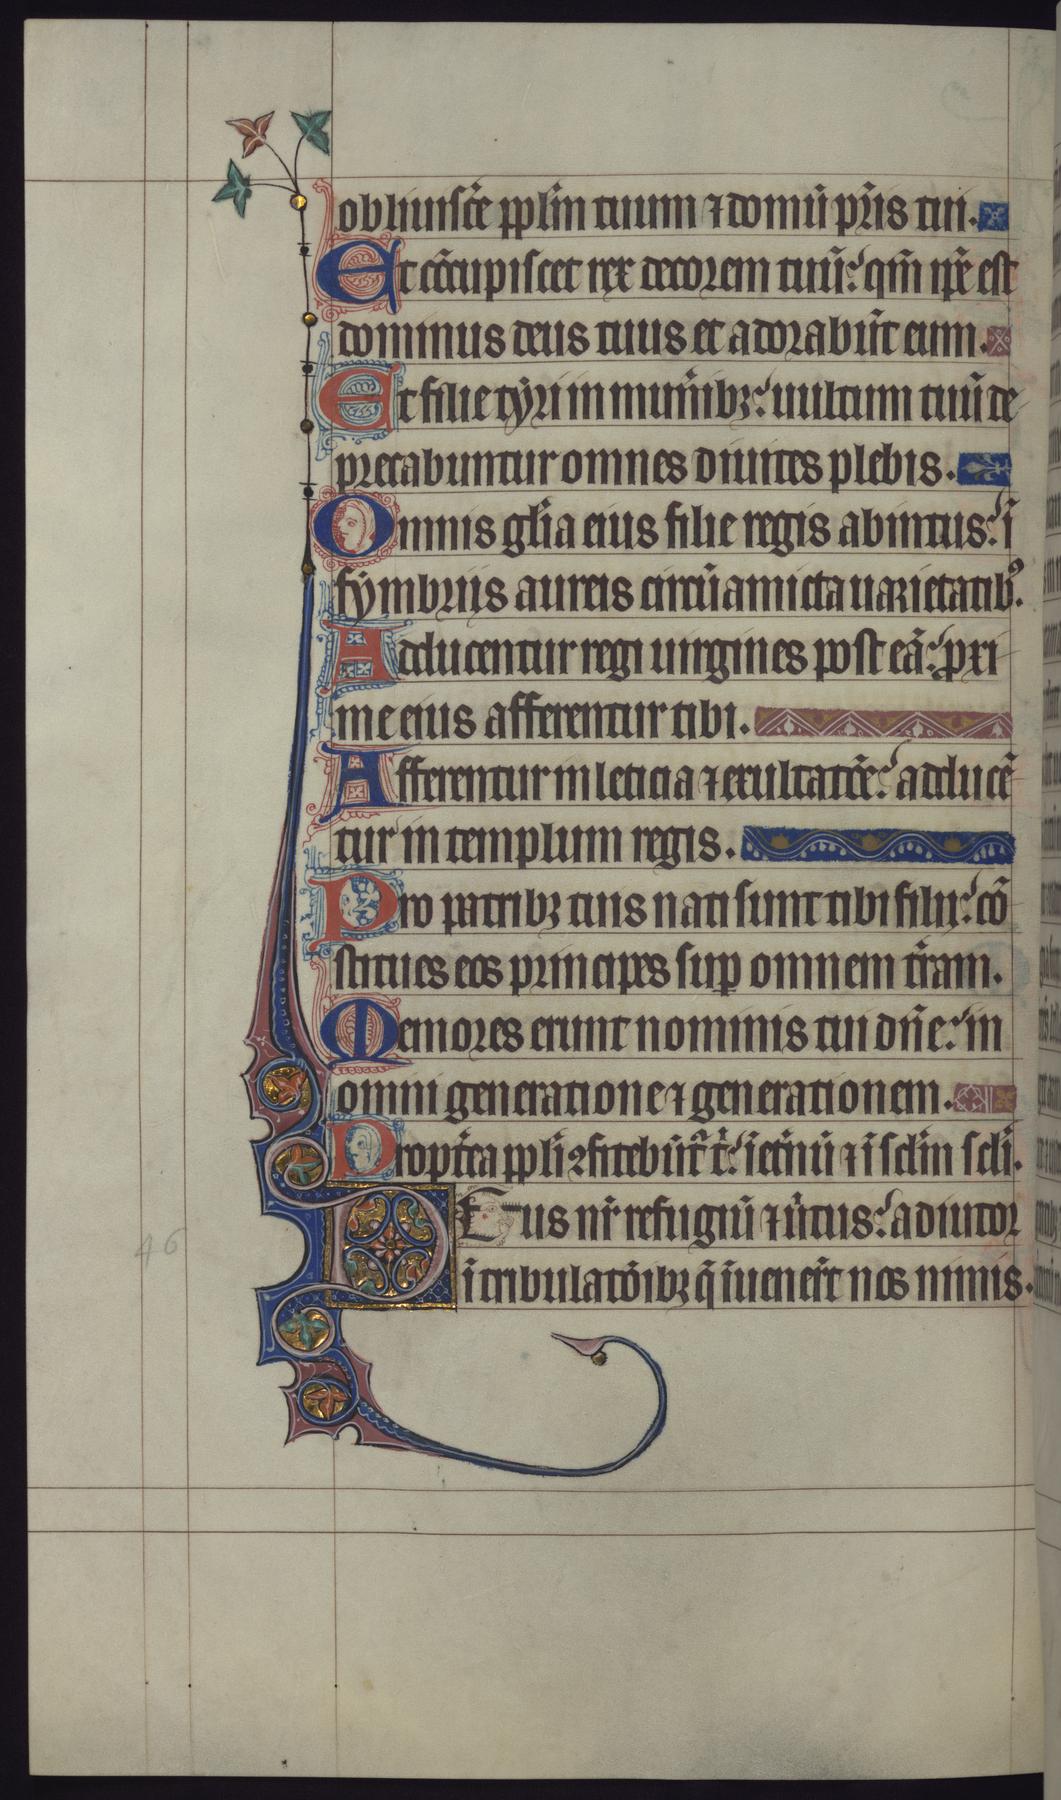 obliuisc̄e pp̄lm tuum ⁊ domū pr̄is tui.
Et cōcupiscet rex decorem tuū: qm̄ ip̄e est
dominus deus tuus et adorabūt eum.
Et filie tẏri in mun̄ib⁊: uultum tuū de
precabuntur omnes diuites plebis.
Omnis glīa eius filie regis abintus: ī
fẏmbriis aureis circūamicta uarietatib⁹.
Adducentur regi uirgines post eā: proxi
me eius afferentur tibi.
Afferentur in leticia ⁊ exultatōe: adducē
tur in templum regis.
Pro patrib⁊ tuis nati sunt tibi filii: cō
stitues eos principes suꝑ omnem tr̄am.
Memores erunt nominis tui dn̄e: in
omni generatione ⁊ generationem.
Propt̄ea pp̄li ꝯfitebūt̄ t̄: ī et̄nū ⁊ ī sc̄lm sc̄li.
DEus nr̄ refugiū ⁊ uirtus: adiutor
ī tribulatōib⁊ q̄ īuener̄t nos nimis.
46